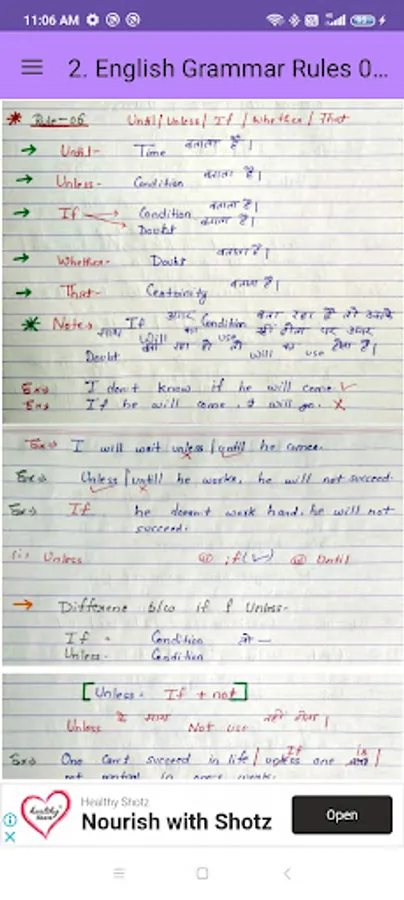 11:06 AM
2. English Grammar Rules 0...
* Rule-06 Until/Unless/If/Whether/That
→ Until- Time बताता है।
→ Unless- Condition बताता है।
→ If → Condition बताता है।
→ Doubt बताता है।
→ Whether- Doubt बताता है।
→ That- Centainity बताता है।
* Note→ If अगर Condition बता रहा है तो उसके
साथ Will का use नहीं होता पर अगर
Doubt बता रहा हो तो will का use होता है।
Ex→ I don't know if he will come ✓
Ex→ If he will come, I will go. X
Ex→ I will wait unless/until he comes.
Ex→ Unless/until he works, he will not succeed.
Ex→ If he doesn't work hard, he will not
succeed.
(i) Unless (ii) if (✓) (iii) Until
→ Differene b/w if & Unless-
If - Condition
Unless- Condition
[Unless- If + not]
Unless के साथ Not use नहीं होता।
Ex→ One can't succeed in life/unless If one is
Healthy Shotz
Nourish with Shotz
Open